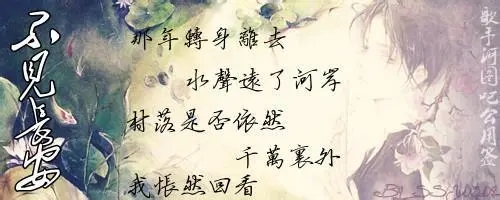 不見長安
那年轉身離去
水聲遠了河岸
村落是否依然
千萬裏外
我悵然回看
歌手河图吧公用签